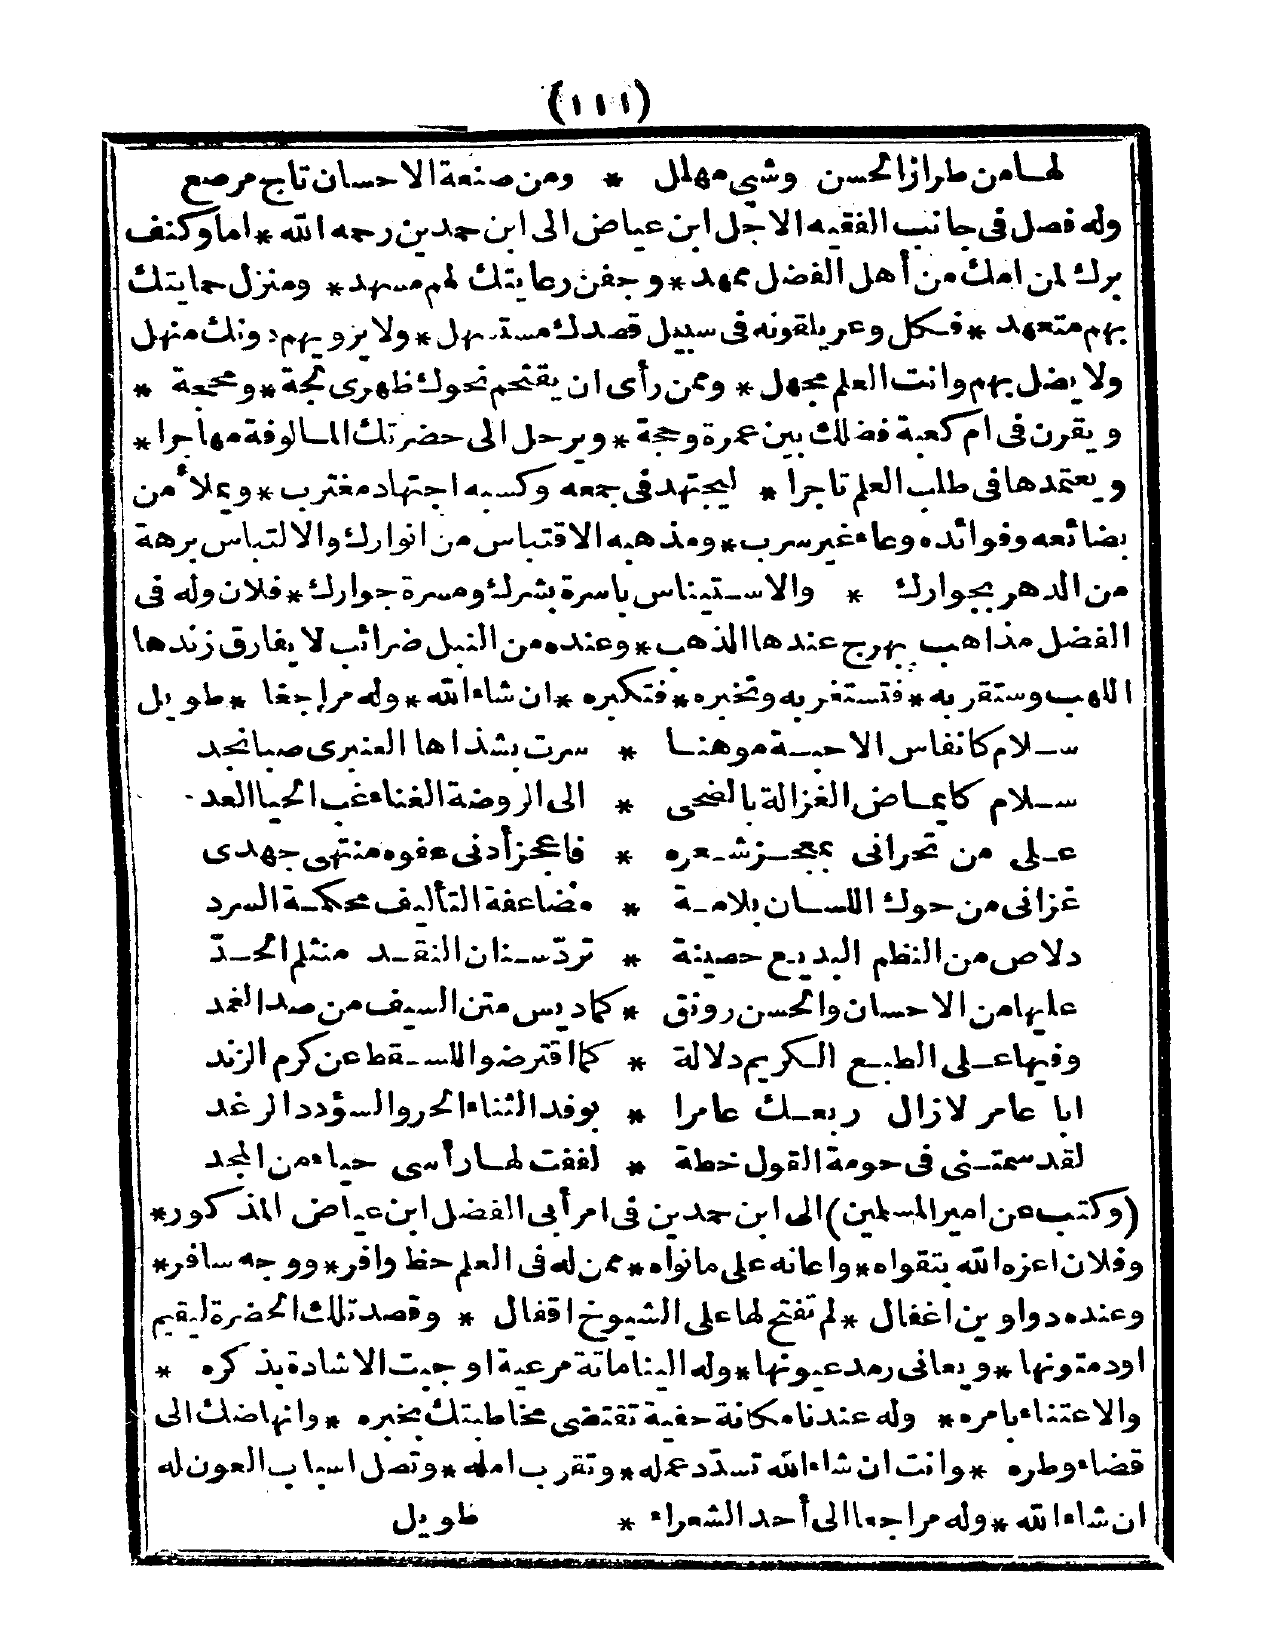 (١١١)
لهامن طراز الحسن وشي مهلل * ومن صنعة الاحسان تاج مرصع
وله فصل فى جانب الفقيه الاجل ابن عياض الى ابن حمدين رحمه الله * اما وكنف
برك لمن امك من أهل الفضل ممهد * وجفن رعايتك لهم مسهد * ومنزل حمايتك
بهم متعهد * فكل وعر يلقونه فى سبيل قصدك مستسهل * ولا يزويهم دونك منهل
ولا يضل بهم وانت العلم مجهل * وممن رأى ان يقتحم نحوك ظهرى لجة * ومحجة *
ويقرن فى ام كعبة فضلك بين عمرة وحجة * ويرحل الى حضرتك المالوفة مهاجرا *
ويعتمدها فى طلب العلم تاجرا * ليجتهد فى جمعه وكسبه اجتهاد مغترب * ويملأ من
بضائعه وفوائده وعاء غير سرب * ومذهبه الاقتباس من انوارك والالتباس برهة
من الدهر بجوارك * والاستيناس باسرة بشرك ومسرة جوارك * فلان وله فى
الفضل مذاهب يبهرج عندها الذهب * وعنده من النبل ضرائب لا يفارق زندها
اللهب وستقر به * فتستغربه وتخبره * فتكبره * ان شاء الله * وله مراجعا * طويل
سلام كانفاس الاحبة موهنا * سرت بشذاها العنبرى صبا نجد
سلام كايماض الغزالة بالضحى * الى الروضة الغناء غب الحيا العد
على من تحرانى بمعجز شعره * فاعجز أدنى عفوه منتهى جهدى
غزانى من حوك اللسان بلامة * مضاعفة التأليف محكمة السرد
دلاص من النظم البديع حصينة * تردّ سنان النقد منثلم الحدّ
عليها من الاحسان والحسن رونق * كما ديس متن السيف من صدا الغمد
وفيها على الطبع الكريم دلالة * كما اقترضوا للسقط عن كرم الزند
ابا عامر لازال ربعك عامرا * بوفد الثناء الحر والسؤدد الرغد
لقد سمتنى فى حومة القول خطة * لففت لها رأسى حياء من المجد
(وكتب عن امير المسلمين) الى ابن حمدين فى امر أبى الفضل ابن عياض المذكور *
وفلان اعزه الله بتقواه * واعانه على مانواه * ممن له فى العلم حظ وافر * ووجه سافر *
وعنده دواوين اغفال * لم تفتح لها على الشيوخ اقفال * وقصد تلك الحضرة ليقيم
اود متونها * ويعانى رمد عيونها * وله الينا ماتة مرعية اوجبت الاشادة بذكره *
والاعتناء بامره * وله عندنا مكانة حفية تقتضى مخاطبتك بخبره * وانهاضك الى
قضاء وطره * وانت ان شاء الله تسدّد عمله * وتقرب امله * وتصل اسباب العون له
ان شاء الله * وله مراجعا الى أحد الشعراء * طويل